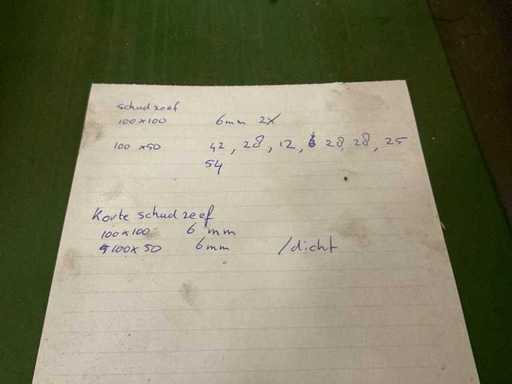 schudzeef
100x100 6mm 2x
100 x50 42, 28, 12, 28, 28, 25
54
Korte schudzeef
100x100 6 mm
100x 50 6mm /dicht